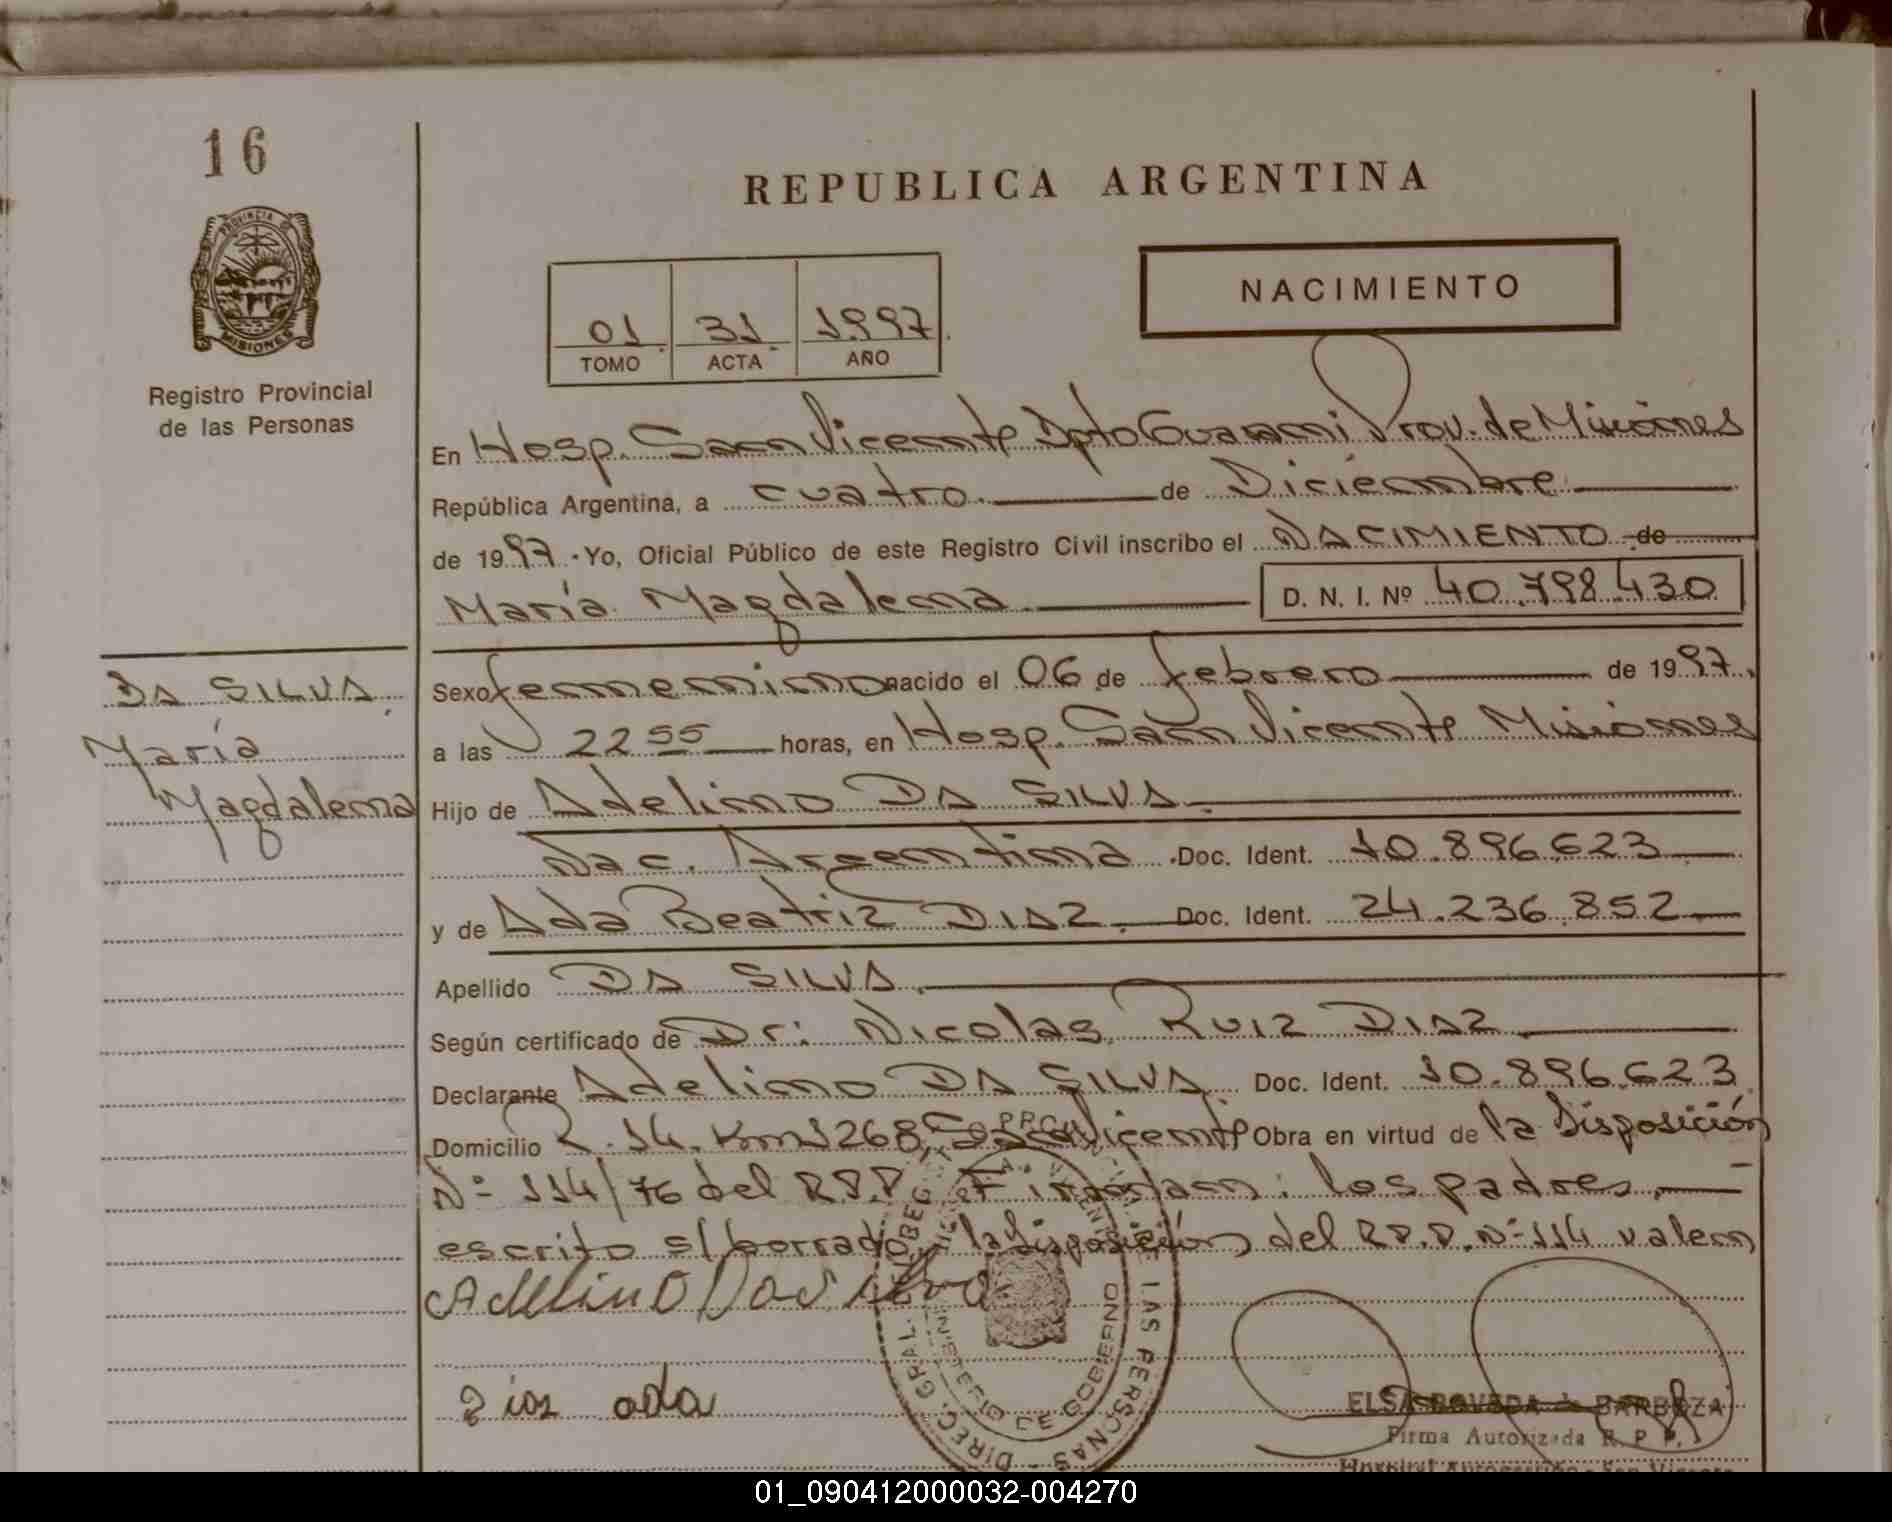 16
PROVINCIA DE
MISIONES
Registro Provincial
de las Personas
REPUBLICA ARGENTINA
01 31 1997
TOMO ACTA AÑO
NACIMIENTO
En Hosp. San Vicente Dpto Guarani Prov. de Misiones
República Argentina, a cuatro. de Diciembre
de 1997. Yo, Oficial Público de este Registro Civil inscribo el NACIMIENTO de
María Magdalena D. N. I. Nº 40.798.430
DA SILVA
María
Magdalena
Sexo femenino nacido el 06 de febrero de 1997.
a las 22 55 horas, en Hosp. San Vicente Misiones
Hijo de Adelino DA SILVA.
Nac. Argentina Doc. Ident. 10.896.623
y de Ada Beatriz DIAZ. Doc. Ident. 24.236.852
Apellido DA SILVA.
Según certificado de Dr: Nicolas RUIZ DIAZ
Declarante Adelino DA SILVA. Doc. Ident. 10.896.623
Domicilio R.14. Km1268 San Vicente Obra en virtud de la Disposición
Nº 114/76 del R.P.P. Firman: los padres.
escrito s/ borrado la Disposición del R.P.P. Nº 114 valen
Adelino Da Silva
Dias ada
DIREC. GRAL. DE LAS PERSONAS
MINISTERIO DE GOBIERNO
ELSA POVEDA de BARBOZA
Firma Autorizada R. P. P.
01_090412000032-004270